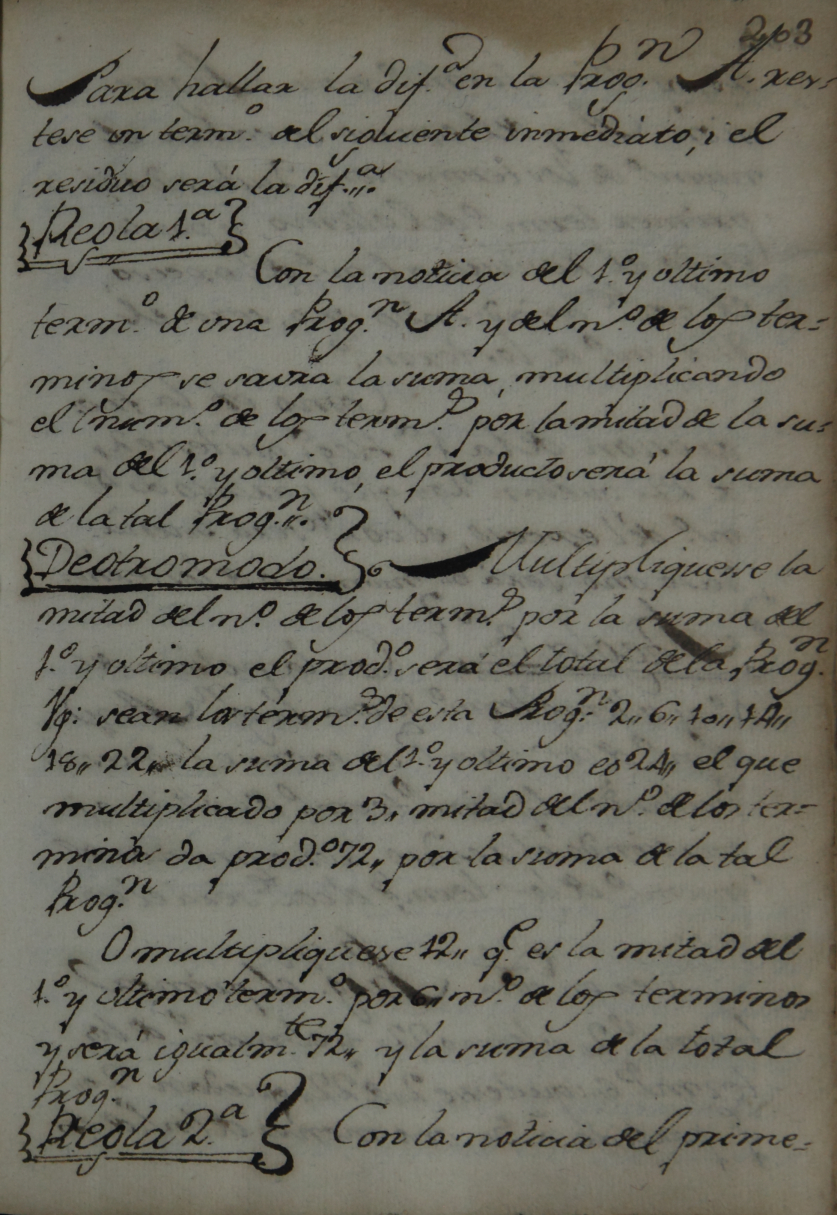 203
Para hallar la dif.ª en la Prog.n A. res-
tese un term.º del siguiente inmediato, i el
residuo será la dif.ª
Regla 1.ª
Con la noticia del 1.º y ultimo
term.º de una Prog.n A. y del n.º de los ter-
minos se savra la suma, multiplicando
el num.º de los term.s por la mitad de la su-
ma del 1.º y ultimo, el producto será la suma
de la tal Prog.n
De otro modo. Multipliquese la
mitad del n.º de los term.s por la suma del
1.º y ultimo el prod.º será el total de la Prog.n
Vg: sean los term.s de esta Prog.n 2,, 6,, 10,, 14,,
18,, 22,, la suma del 1.º y ultimo es 24,, el que
multiplicado por 3,, mitad del n.º de los ter-
minos da prod.º 72,, por la suma de la tal
Prog.n
O multipliquese 12,, q.e es la mitad del
1.º y ultimo term.º por 6,, n.º de los terminos
y será igualm.te 72,, y la suma de la total
Prog.n
Regla 2.ª Con la noticia del prime-